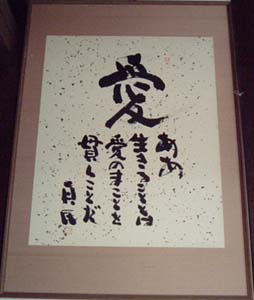 愛
ああ
生きることは
愛のまことを
貫くことだ
真民